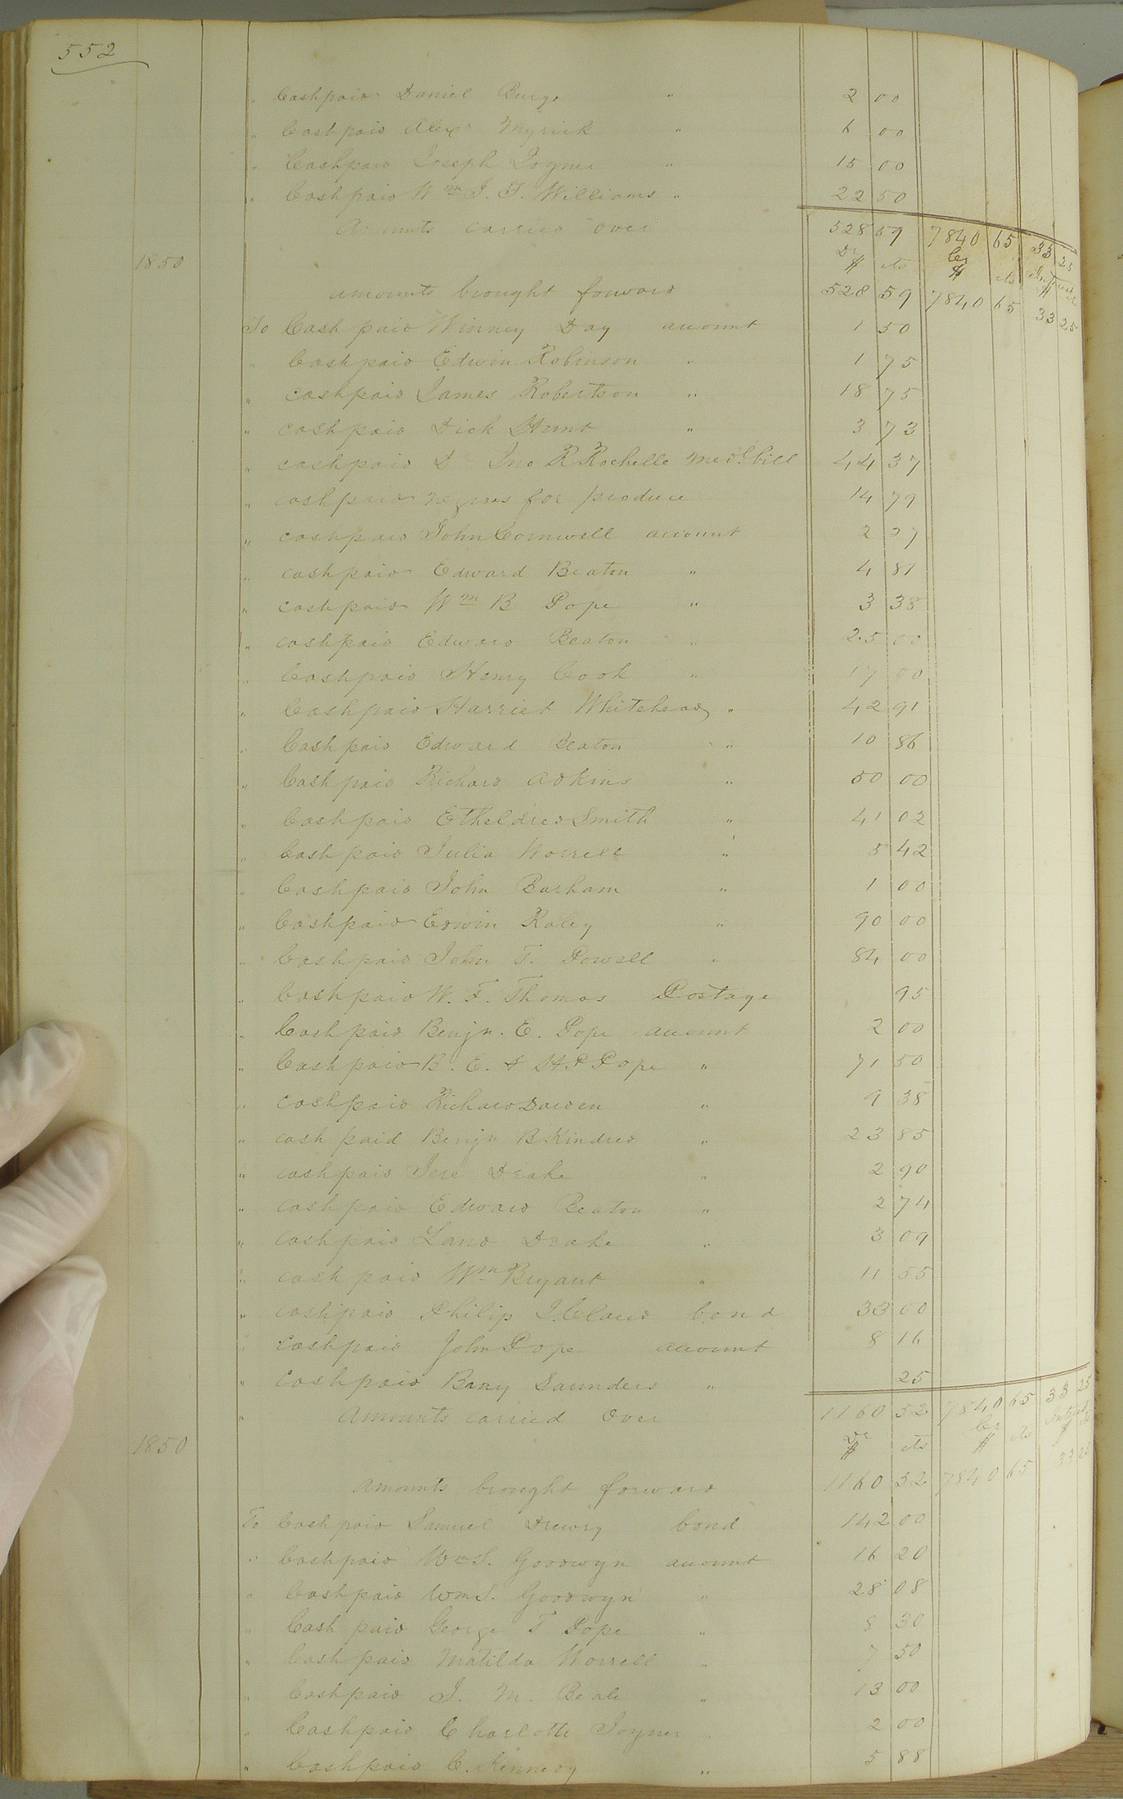 552
" Cash paid Daniel Burge " 2 00
" Cash paid Alex Myrick " 6 00
" Cash paid Joseph Joyner " 15 00
" Cash paid Wm J. T. Williams " 22 50
Amounts carried over 528 59 7840 65 33 25
1850 Dr $ cts Cr $ cts Interest $
amounts brought forward 528 59 7840 65 33 25
To Cash paid Winney Day account 1 50
" Cash paid Edwin Robinson " 1 75
" cash paid James Robertson " 18 75
" cash paid Dick Hunt " 3 73
" cash paid Dr Jno R Rochelle Medl. bill 44 37
" cash paid negroes for produce 14 79
" cash paid John Cornwell account 2 27
" cash paid Edward Beaton " 4 81
" cash paid Wm B Pope " 3 38
" cash paid Edward Beaton " 25 00
" Cash paid Henry Cook " 17 00
" Cash paid Harriet Whitehead " 42 91
" Cash paid Edward Beaton " 10 86
" Cash paid Richard Adkins " 50 00
" Cash paid Etheldred Smith " 41 02
" Cash paid Julia Worrell " 5 42
" Cash paid John Barham " 1 00
" Cash paid Edwin Raley " 90 00
" Cash paid John T. Powell " 84 00
" Cash paid W. F. Thomas Postage 95
" Cash paid Benjn. E. Pope account 2 00
" Cash paid B. E. & H P Pope " 71 50
" cash paid Richard Darden " 9 38
" cash paid Benjn B Kindred " 23 85
" cash paid Jere Drake " 2 90
" cash paid Edward Beaton " 2 74
" cash paid Land Drake " 3 09
" cash paid Wm Bryant " 11 55
" cash paid Philip J. Claud bond 33 00
" cash paid John Pope account 8 16
" cash paid Barry Saunders " 25
" Amounts carried Over 1160 52 7840 65 33 25
1850 Dr $ cts Cr $ cts Interest $
Amounts brought forward 1160 52 7840 65 33 25
To Cash paid Samuel Drewry bond 142 00
" Cash paid Wm S. Goodwyn account 16 20
" Cash paid Wm S. Goodwyn " 28 08
" Cash paid George T Pope " 8 30
" Cash paid Matilda Worrell " 7 50
" Cash paid J. M. Beale " 13 00
" Cash paid Charlotte Joyner 2 00
" Cash paid C. Kennedy " 5 88